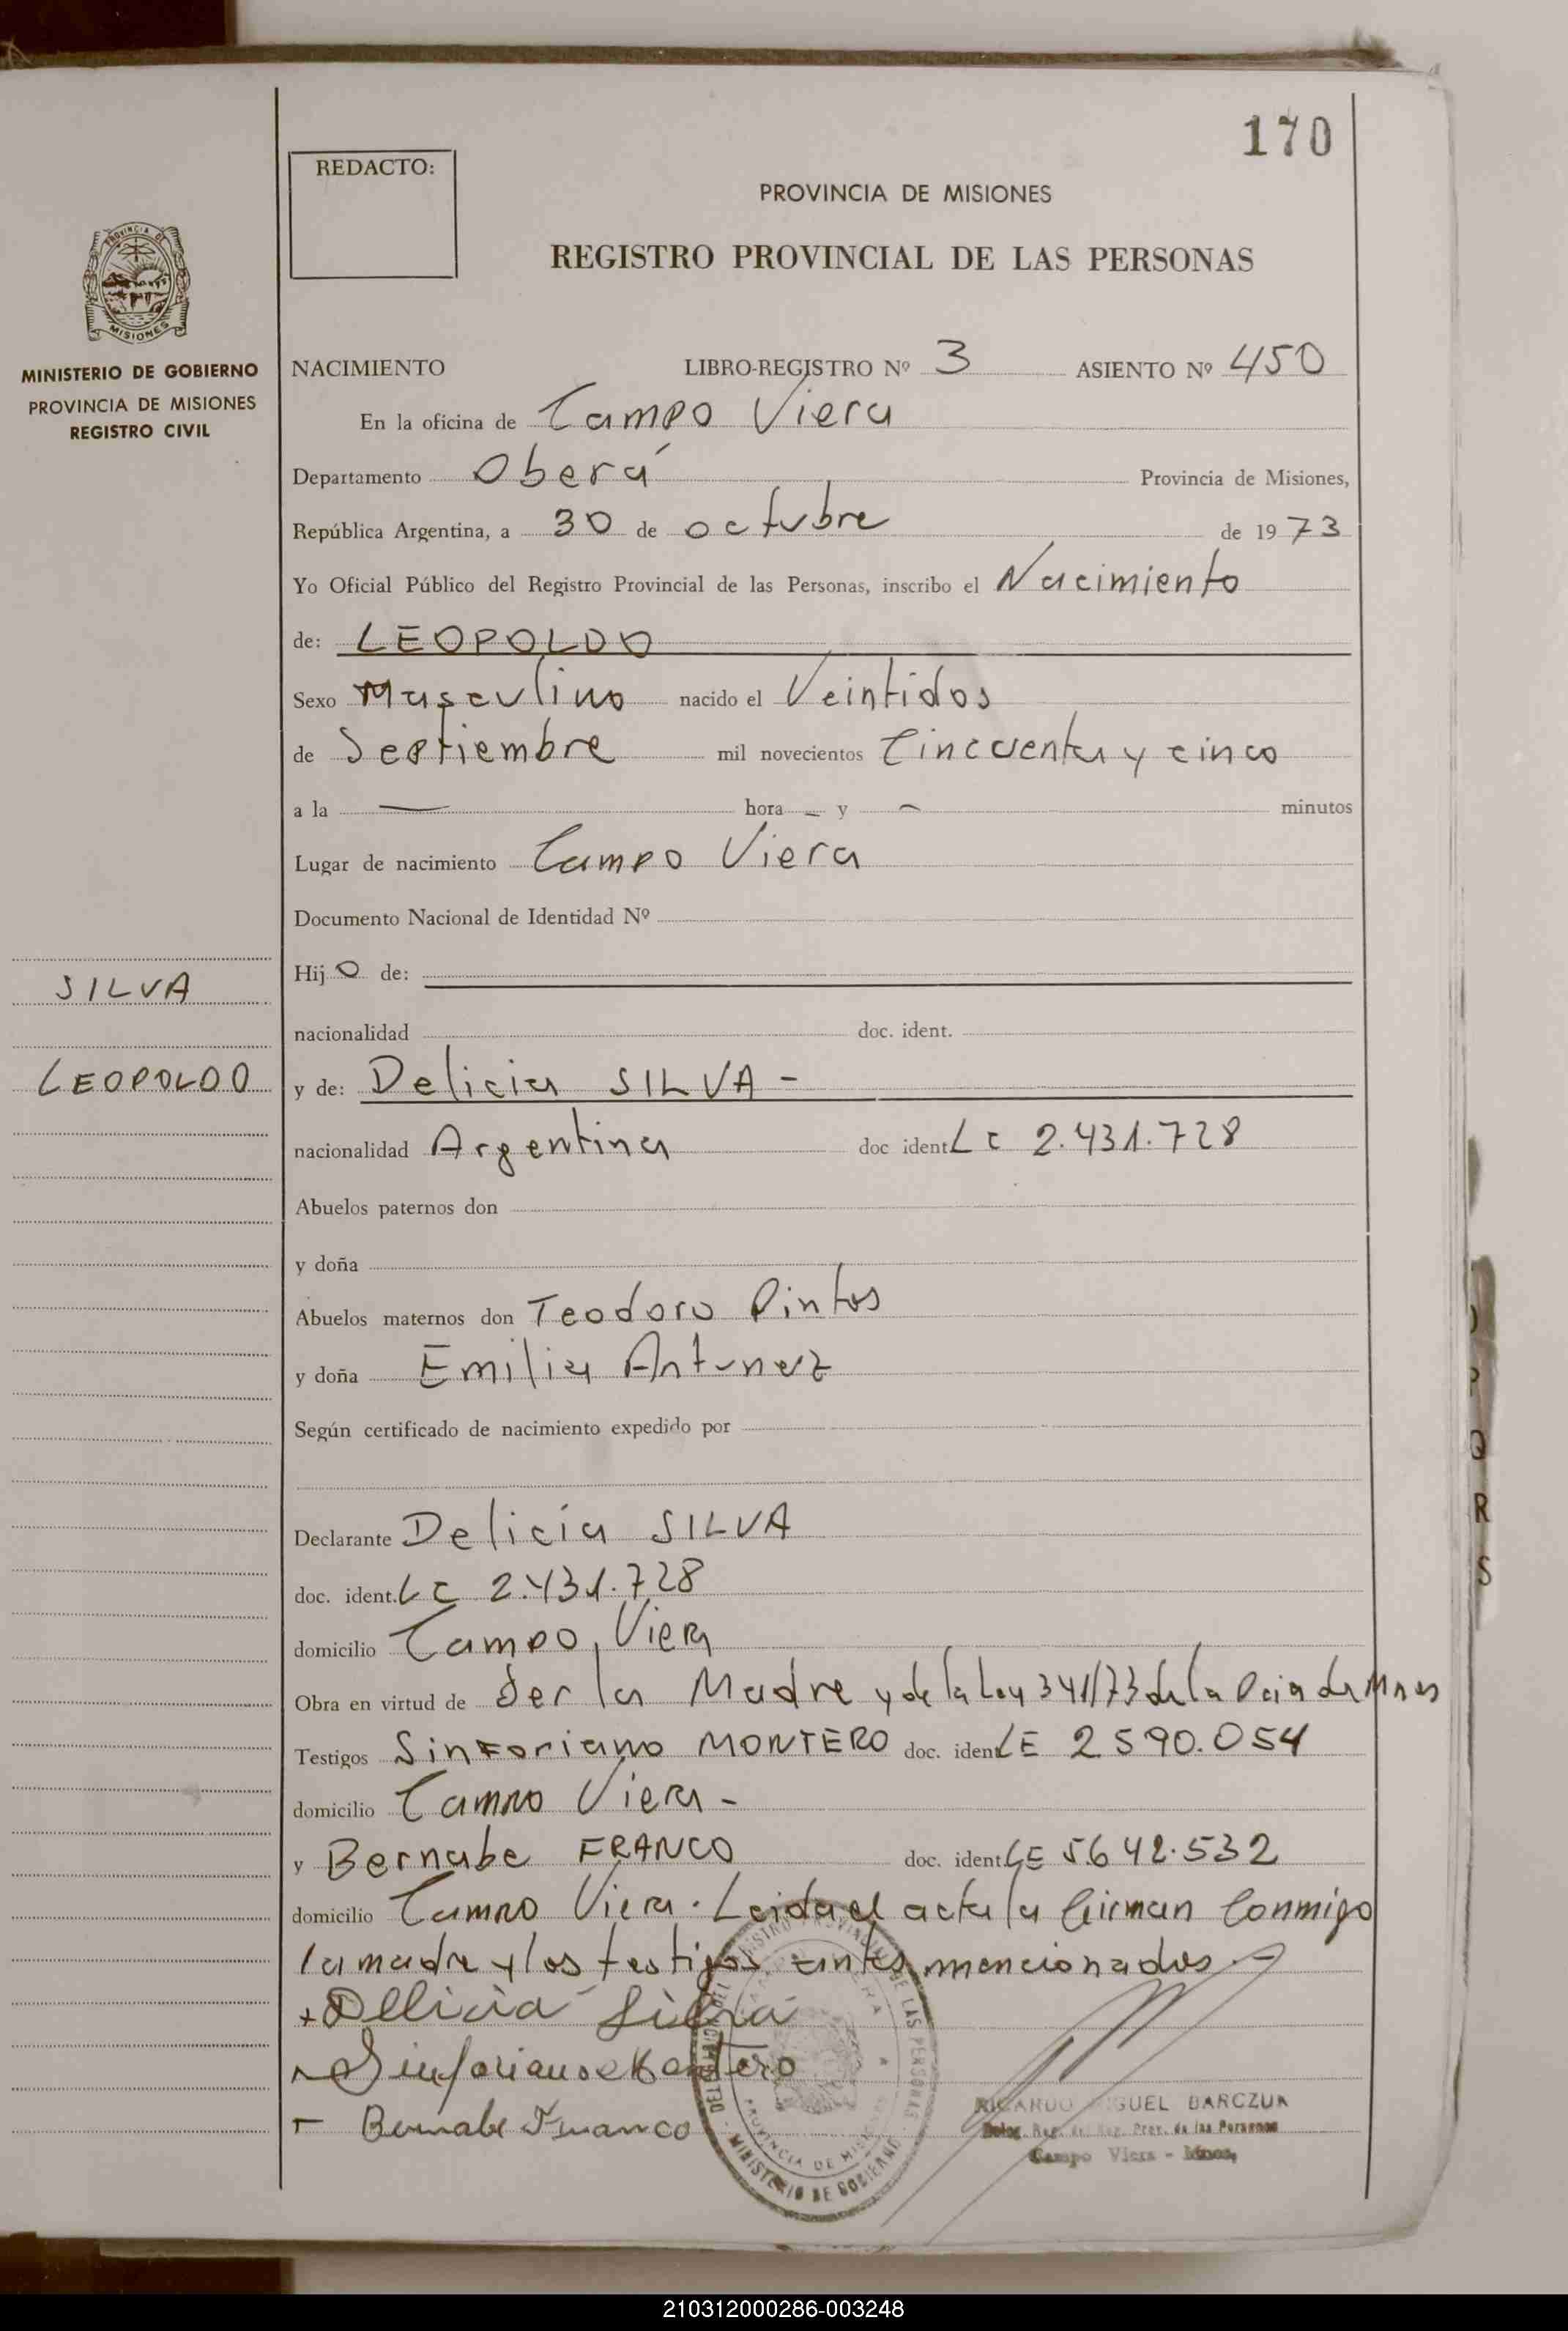 170
REDACTO:
PROVINCIA DE MISIONES
REGISTRO PROVINCIAL DE LAS PERSONAS
MISIONES
MINISTERIO DE GOBIERNO
PROVINCIA DE MISIONES
REGISTRO CIVIL
NACIMIENTO LIBRO-REGISTRO Nº 3 ASIENTO Nº 450
En la oficina de Campo Viera
Departamento Oberá Provincia de Misiones,
República Argentina, a 30 de octubre de 1973
Yo Oficial Público del Registro Provincial de las Personas, inscribo el Nacimiento
de: LEOPOLDO
Sexo Masculino nacido el Veintidos
de Septiembre mil novecientos Cincuenta y cinco
a la — hora – y – minutos
Lugar de nacimiento Campo Viera
Documento Nacional de Identidad Nº
Hijo de:
SILVA
nacionalidad doc. ident.
LEOPOLDO
y de: Delicia SILVA -
nacionalidad Argentina doc ident LC 2.431.728
Abuelos paternos don
y doña
Abuelos maternos don Teodoro Pintos
y doña Emilia Antunez
Según certificado de nacimiento expedido por
Declarante Delicia SILVA
doc. ident. LC 2.431.728
domicilio Campo Viera
Obra en virtud de Ser la Madre y de la Ley 341/73 de la Pcia de Mnes
Testigos Sinforiano MONTERO doc. ident LE 2590.054
domicilio Campo Viera -
y Bernabe FRANCO doc. ident. LE 5.642.532
domicilio Campo Viera. Leida el acta la firman Conmigo
la madre y los testigos antes mencionados.
+ Delicia Silva
Sinforiano Montero
Bernabe Franco
RICARDO MIGUEL BARCZUK
Deleg. Reg. del Reg. Prov. de las Personas
Campo Viera - Mnes.
PROVINCIA DE MISIONES
MINISTERIO DE GOBIERNO
P
Q
R
S
210312000286-003248